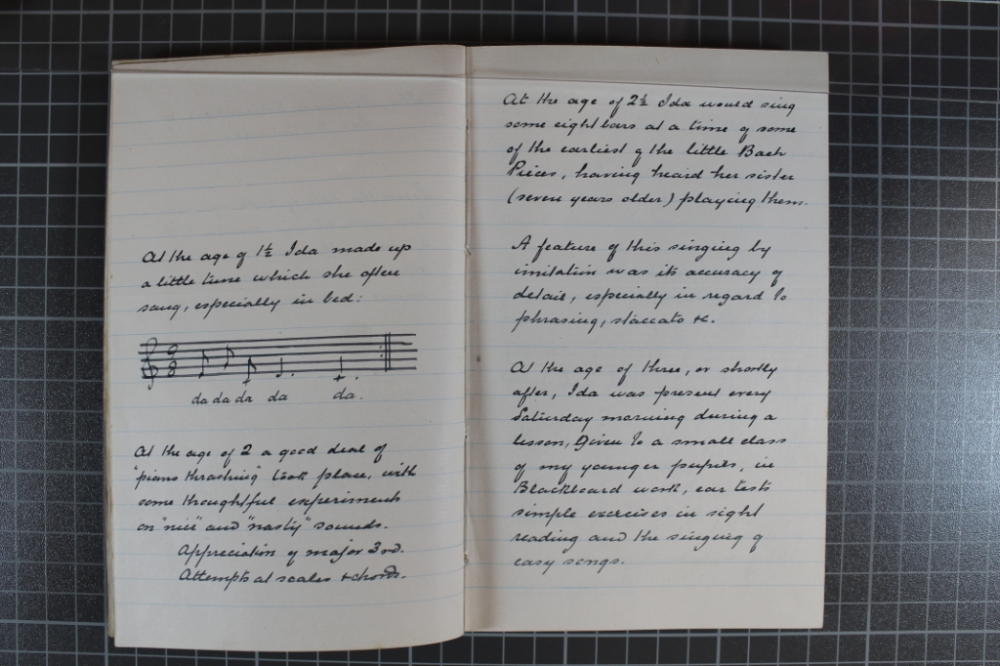 At the age of 1½ Ida made up
a little tune which she often
sang, especially in bed:
9
8
da da da da da.
At the age of 2 a good deal of
"piano thrashing" took place, with
some thoughtful experiments
on "nice" and "nasty" sounds.
Appreciation of major 3rd.
Attempts at scales & chords.
At the age of 2½ Ida would sing
some eight bars at a time of some
of the earliest of the little Bach
Pieces, having heard her sister
(seven years older) playing them.
A feature of this singing by
imitation was its accuracy of
detail, especially in regard to
phrasing, staccato &c.
At the age of three, or shortly
after, Ida was present every
Saturday morning during a
lesson, given to a small class
of my younger pupils, in
Blackboard work, ear tests
simple exercises in sight
reading and the singing of
easy songs.